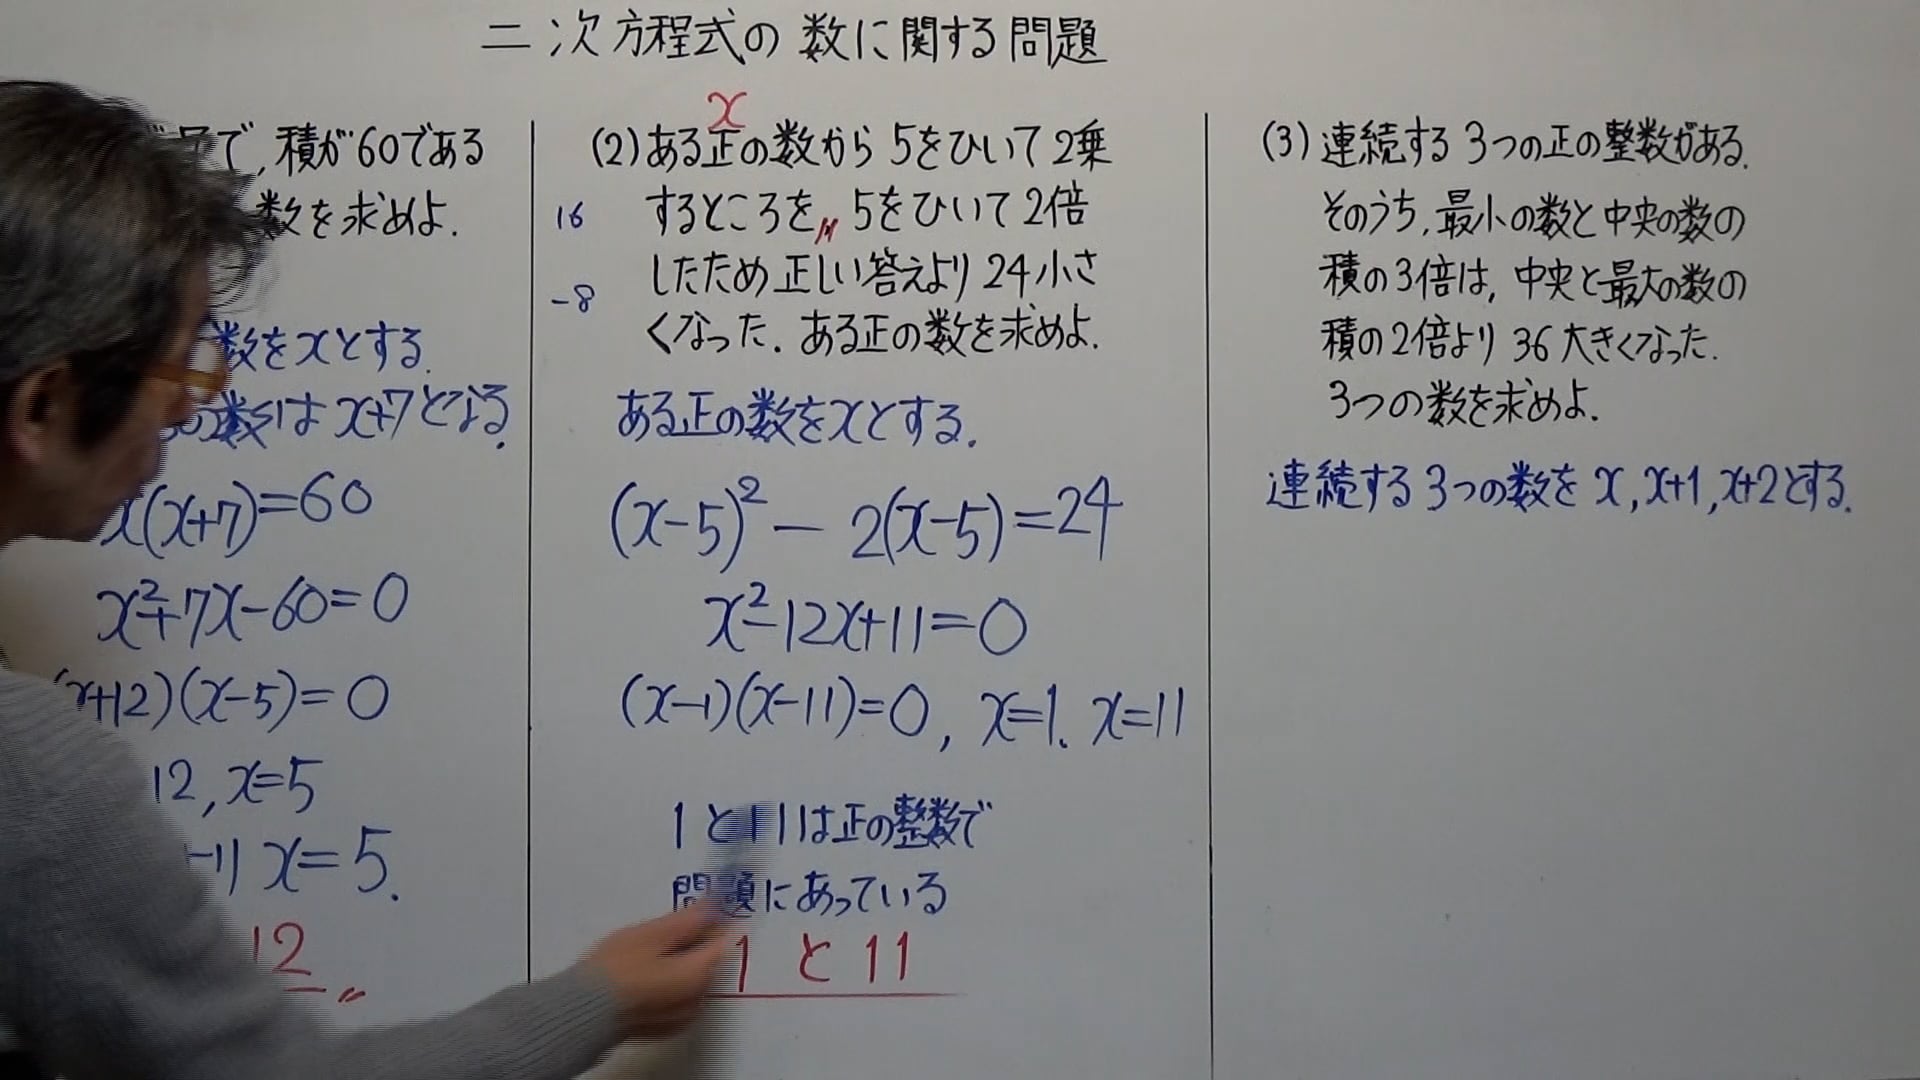 二次方程式の数に関する問題
で,積が60である
数を求めよ.
数をxとする.
の数は x+7となる.
x(x+7)=60
x²+7x-60=0
x+12)(x-5)=0
12, x=5
x=5.
12
x
(2)ある正の数から5をひいて2乗
16 するところを,5をひいて2倍
-8 したため正しい答えより24小さ
くなった.ある正の数を求めよ.
ある正の数をxとする.
(x-5)²-2(x-5)=24
x²-12x+11=0
(x-1)(x-11)=0, x=1. x=11
1と11は正の整数で
問題にあっている
1と11
(3)連続する3つの正の整数がある.
そのうち,最小の数と中央の数の
積の3倍は,中央と最大の数の
積の2倍より36大きくなった.
3つの数を求めよ.
連続する3つの数をx,x+1,x+2とする.